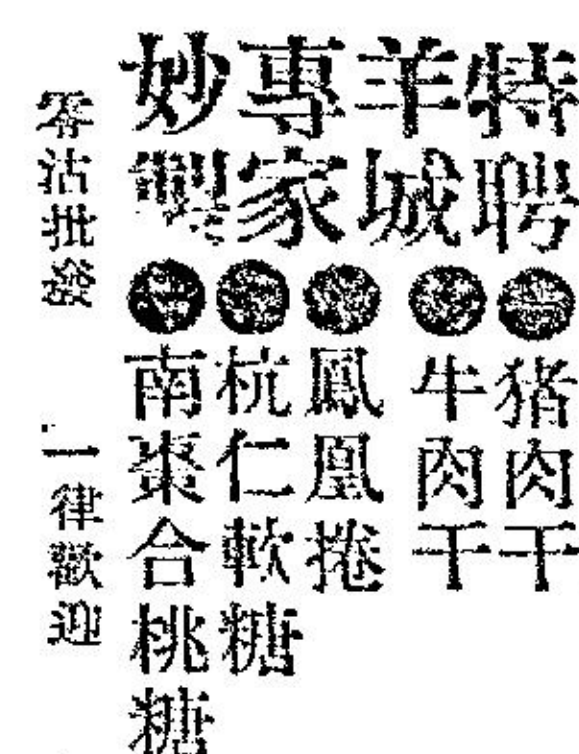 特聘
羊城
專家
妙製
猪肉干
牛肉干
鳳凰捲
杭仁軟糖
南棗合桃糖
零沽批發 一律歡迎